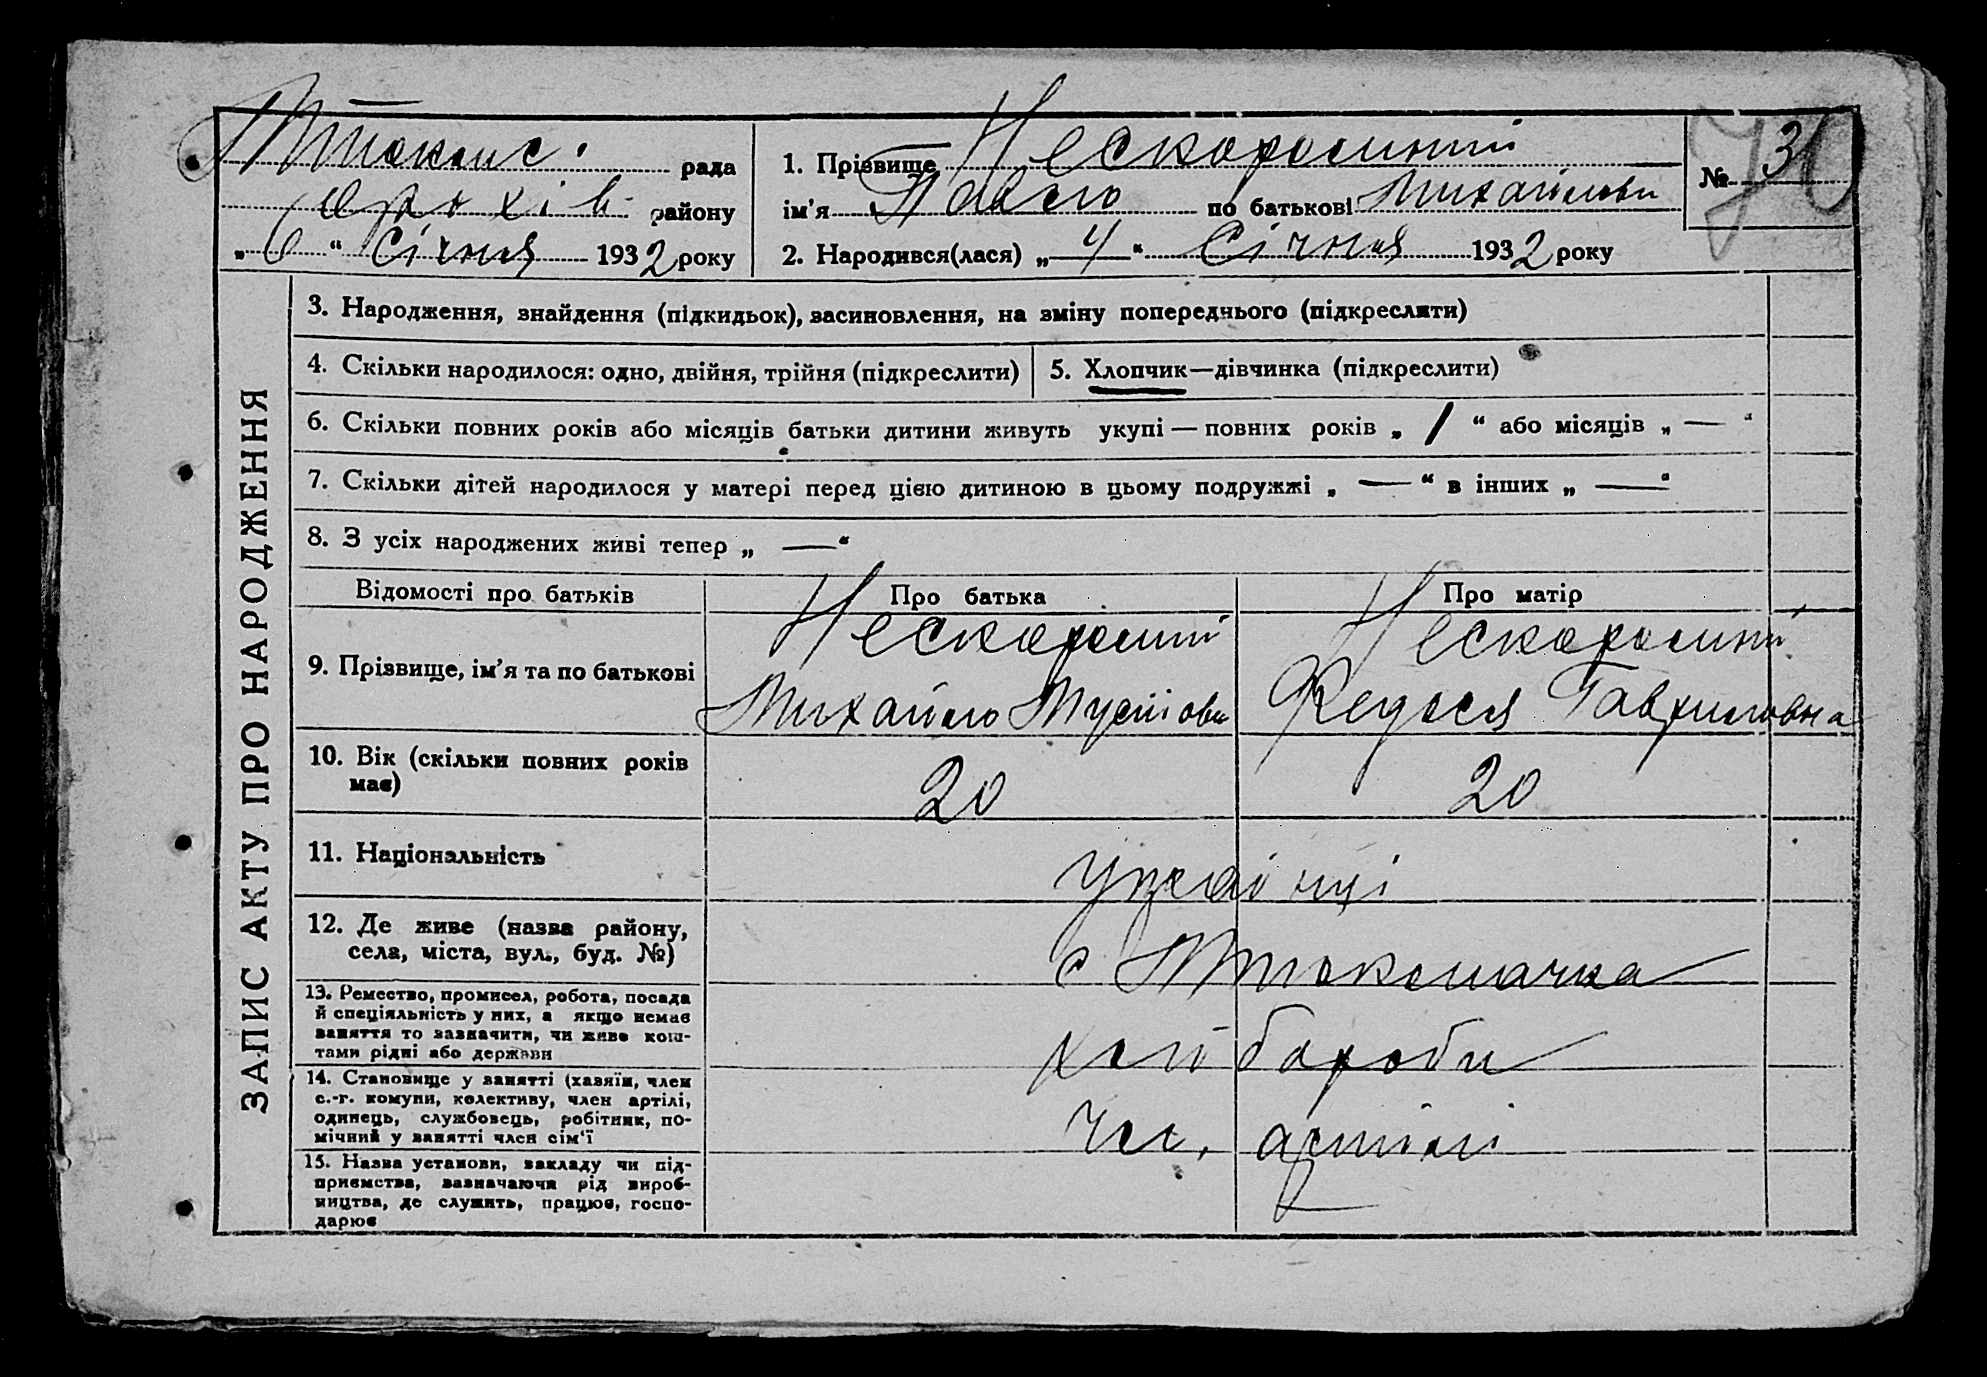 ЗАПИС АКТУ ПРО НАРОДЖЕННЯ
рада
Оріхів району
„6“ Січня 1932 року
1. Прізвище Нескоромний
ім'я Павло по батькові Михайлови
2. Народився(лася) „4“ Січня 1932 року
№ 3
3. Народження, знайдення (підкидьок), засиновлення, на зміну попереднього (підкреслити)
4. Скільки народилося: одно, двійня, трійня (підкреслити)
5. Хлопчик—дівчинка (підкреслити)
6. Скільки повних років або місяців батьки дитини живуть укупі — повних років „1“ або місяців „—“
7. Скільки дітей народилося у матері перед цією дитиною в цьому подружжі „—“ в інших „—“
8. З усіх народжених живі тепер „—“
Відомості про батьків
Про батька
Про матір
9. Прізвище, ім'я та по батькові
Нескоромний
Михайло Мусійови
Нескоромний
Федося Гавриловна
10. Вік (скільки повних років
має)
20
20
11. Національність
українці
12. Де живе (назва району,
села, міста, вул., буд. №)
с
13. Ремество, промисел, робота, посада
й спеціяльність у них, а якщо немає
заняття то зазначити, чи живе кош-
тами рідні або держави
хлібороби
14. Становище у занятті (хазяїн, член
с.-г. комуни, колективу, член артілі,
одинець, службовець, робітник, по-
мічний у занятті член сім'ї
Чл. артілі
15. Назва установи, закладу чи під-
приємства, зазначаючи рід вироб-
ництва, де служить, працює, госпо-
дарює